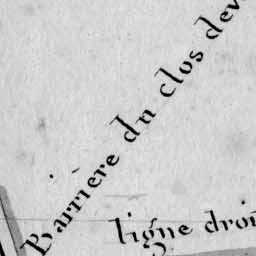 Barrière du clos dev
ligne droi